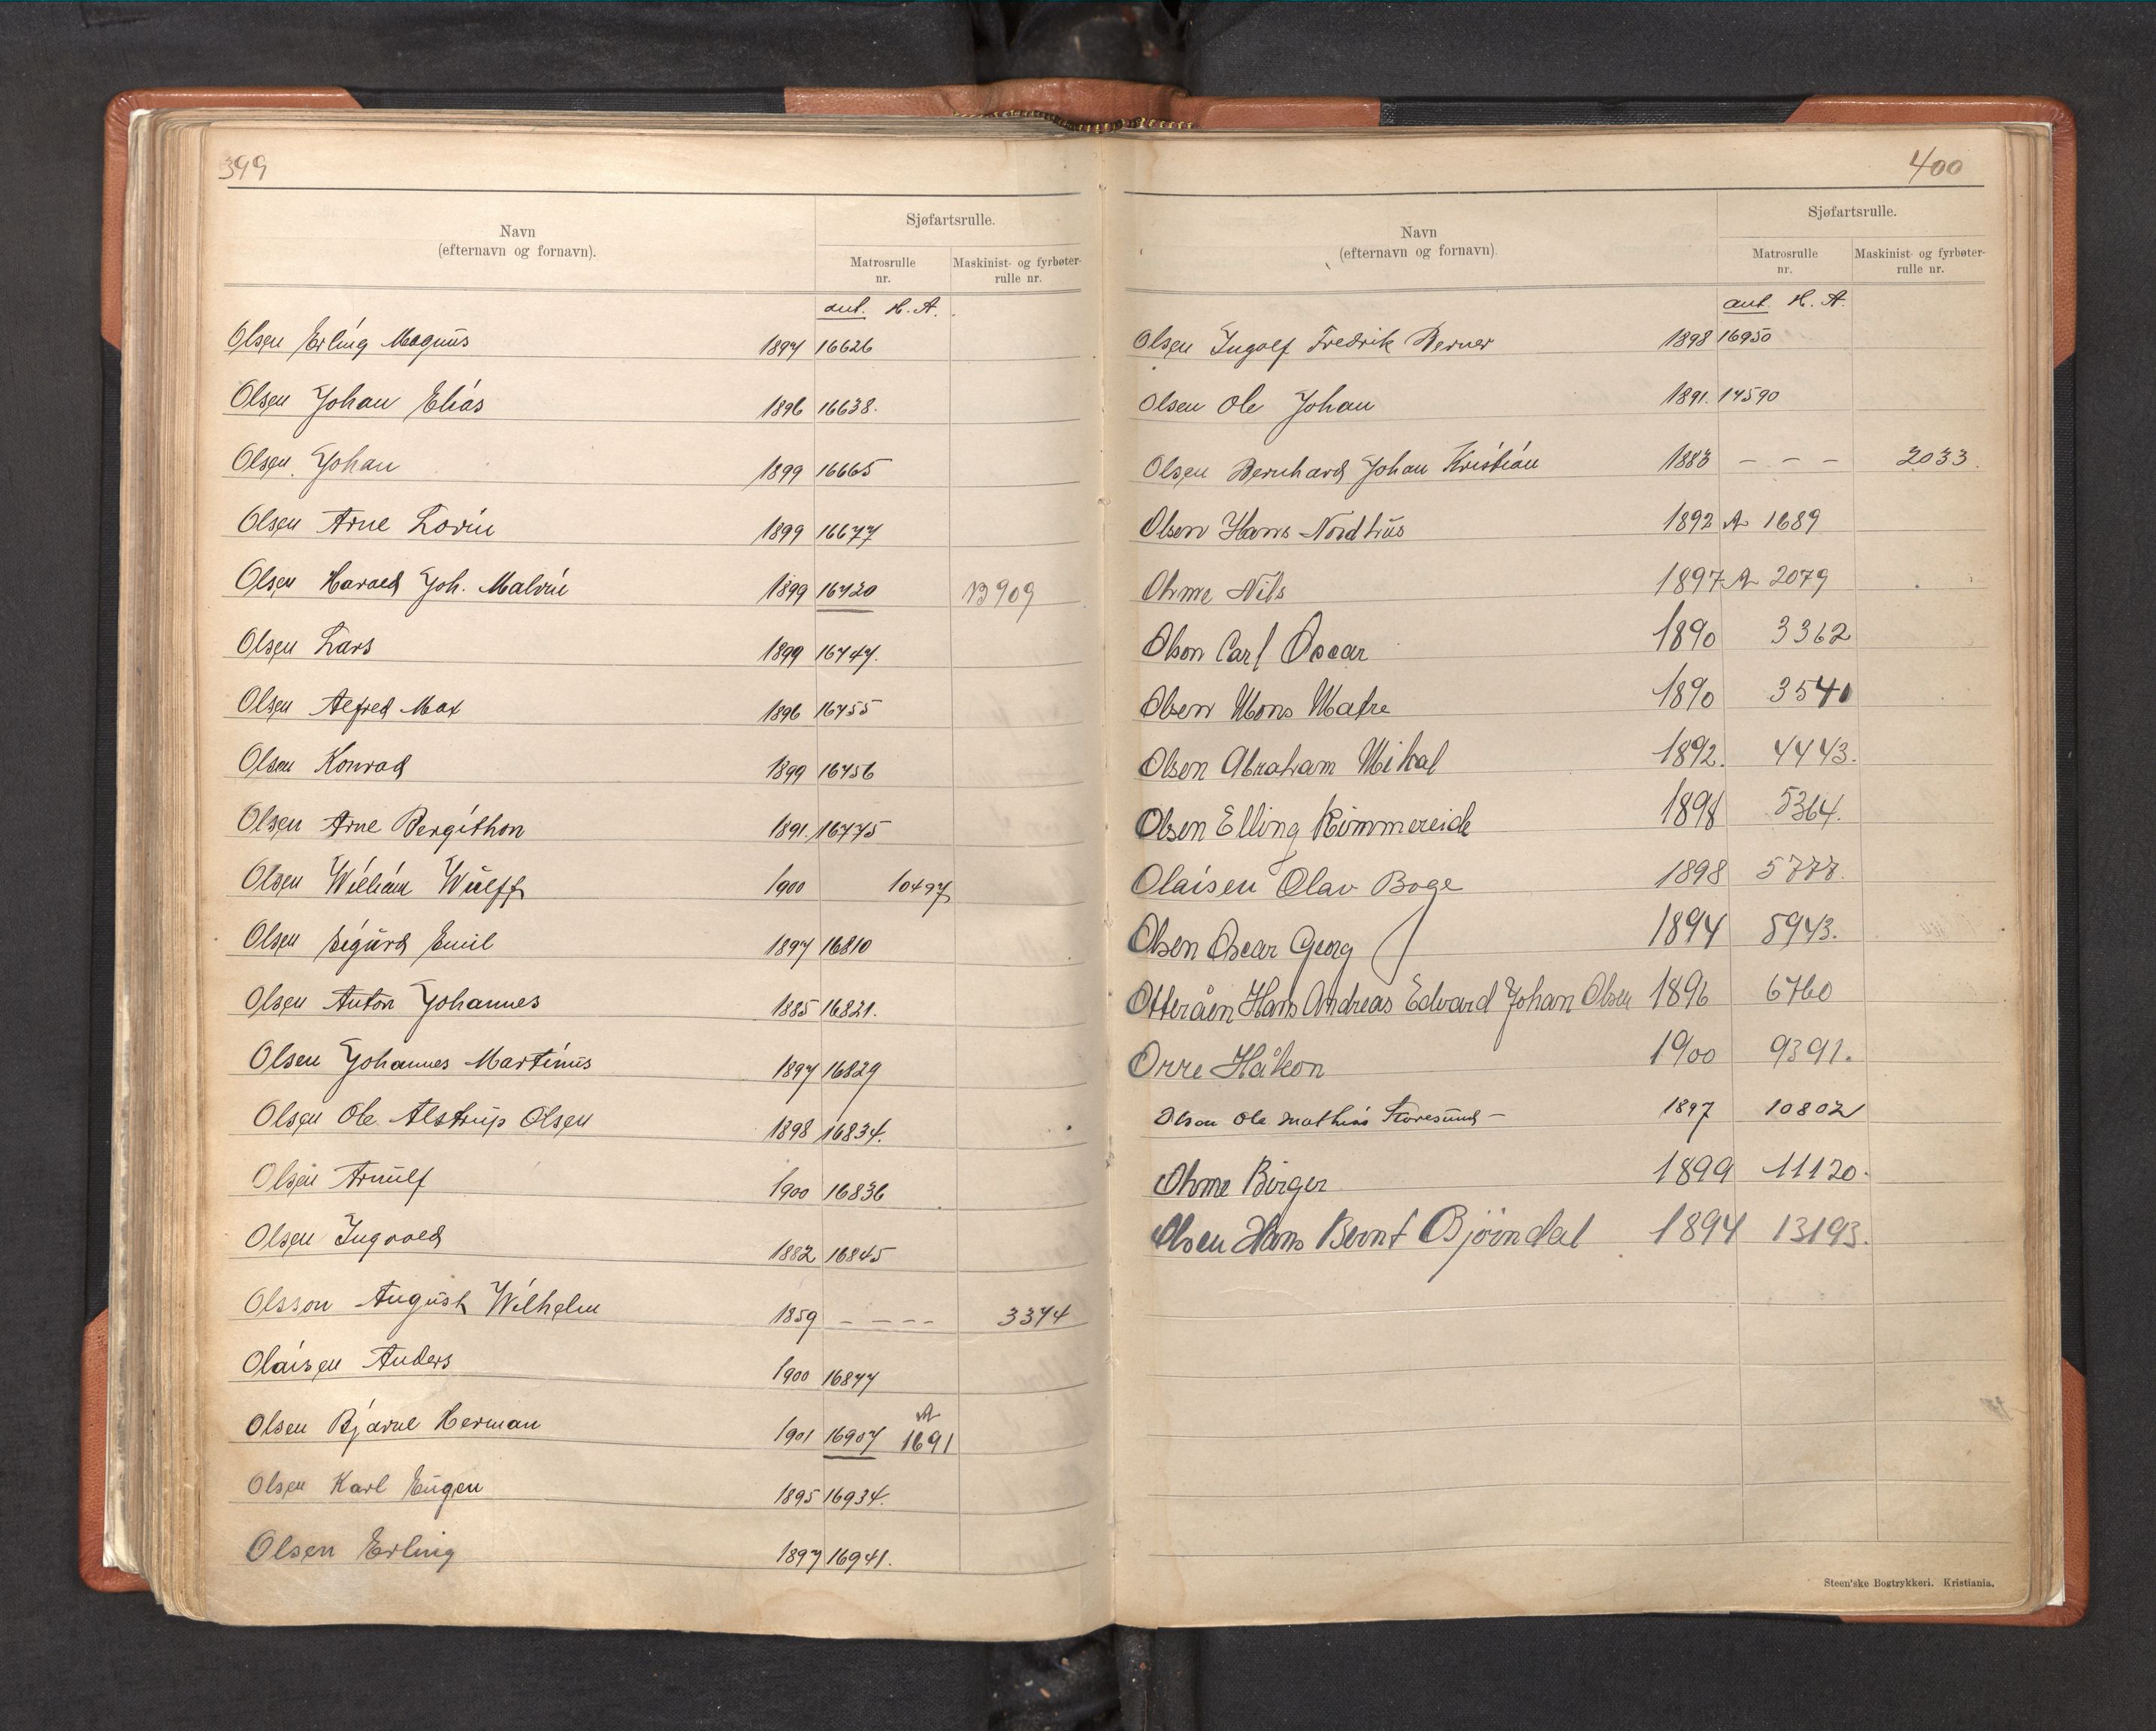 399
Navn
(efternavn og fornavn).
Sjøfartsrulle.
Matrosrulle
nr.
Maskinist- og fyrbøter-
rulle nr.
ant. H. A.
Olsen Erling Magnus 1897 16626
Olsen Johan Elias 1896 16638.
Olsen Johan 1899 16665
Olsen Arne Lovin 1899 16677
Olsen Harald Joh. Malvin 1899 16720 B 909
Olsen Lars 1899 16747.
Olsen Alfred Max 1896 16755
Olsen Konrad 1899 16756
Olsen Arne Bergithon 1891. 16775
Olsen William Wulff 1900 10497
Olsen Sigurd Emil 1897 16810
Olsen Anton Johannes 1885 16821.
Olsen Johannes Martinus 1897 16829
Olsen Ole Alstrup Olsen 1898 16834.
Olsen Arnulf 1900 16836
Olsen Ingvald 1882 16845
Olsson August Wilhelm 1859 - - - - 3374
Olaisen Anders 1900 16877
Olsen Bjarne Herman 1901 16907 A 1691
Olsen Karl Eugen 1895 16934.
Olsen Erling 1897 16941.
400
Navn
(efternavn og fornavn)
Sjøfartsrulle.
Matrosrulle
nr.
Maskinist- og fyrbøter-
rulle nr.
ant. H. A.
Olsen Ingolf Fredrik Berner 1898 16950
Olsen Ole Johan 1891. 14590
Olsen Bernhard Johan Kristian 1883 - - - 2033.
Olsen Hans Nordhus 1892 A 1689
Ohme Nils 1897 A 2079
Olson Carl Oscar 1890 3362
Olsen Mons Matre 1890 3540
Olsen Abraham Mikal 1892. 4443.
Olsen Elling Rimmereide 1898 5364.
Olaisen Olav Boge 1898 5777.
Olsen Oscar Georg 1894 5943.
Otteråen Hans Andreas Edvard Johan Olsen 1896 6760
Orre Håkon 1900 9391.
Olsen Ole Mathias Storesund - 1897 10802
Ohme Birger 1899 11120.
Olsen Hans Bernt Bjørndal 1894 13193.
Steen'ske Bogtrykkeri. Kristiania.